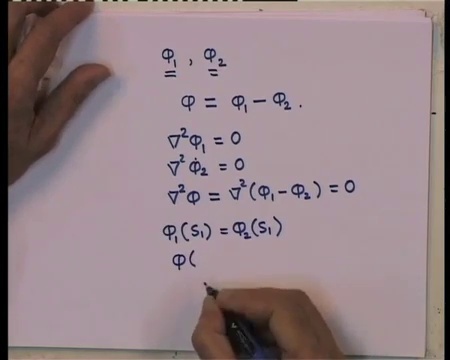 φ₁, φ₂
φ = φ₁ − φ₂.
∇²φ₁ = 0
∇²φ₂ = 0
∇²φ = ∇²(φ₁ − φ₂) = 0
φ₁(S₁) = φ₂(S₁)
φ(